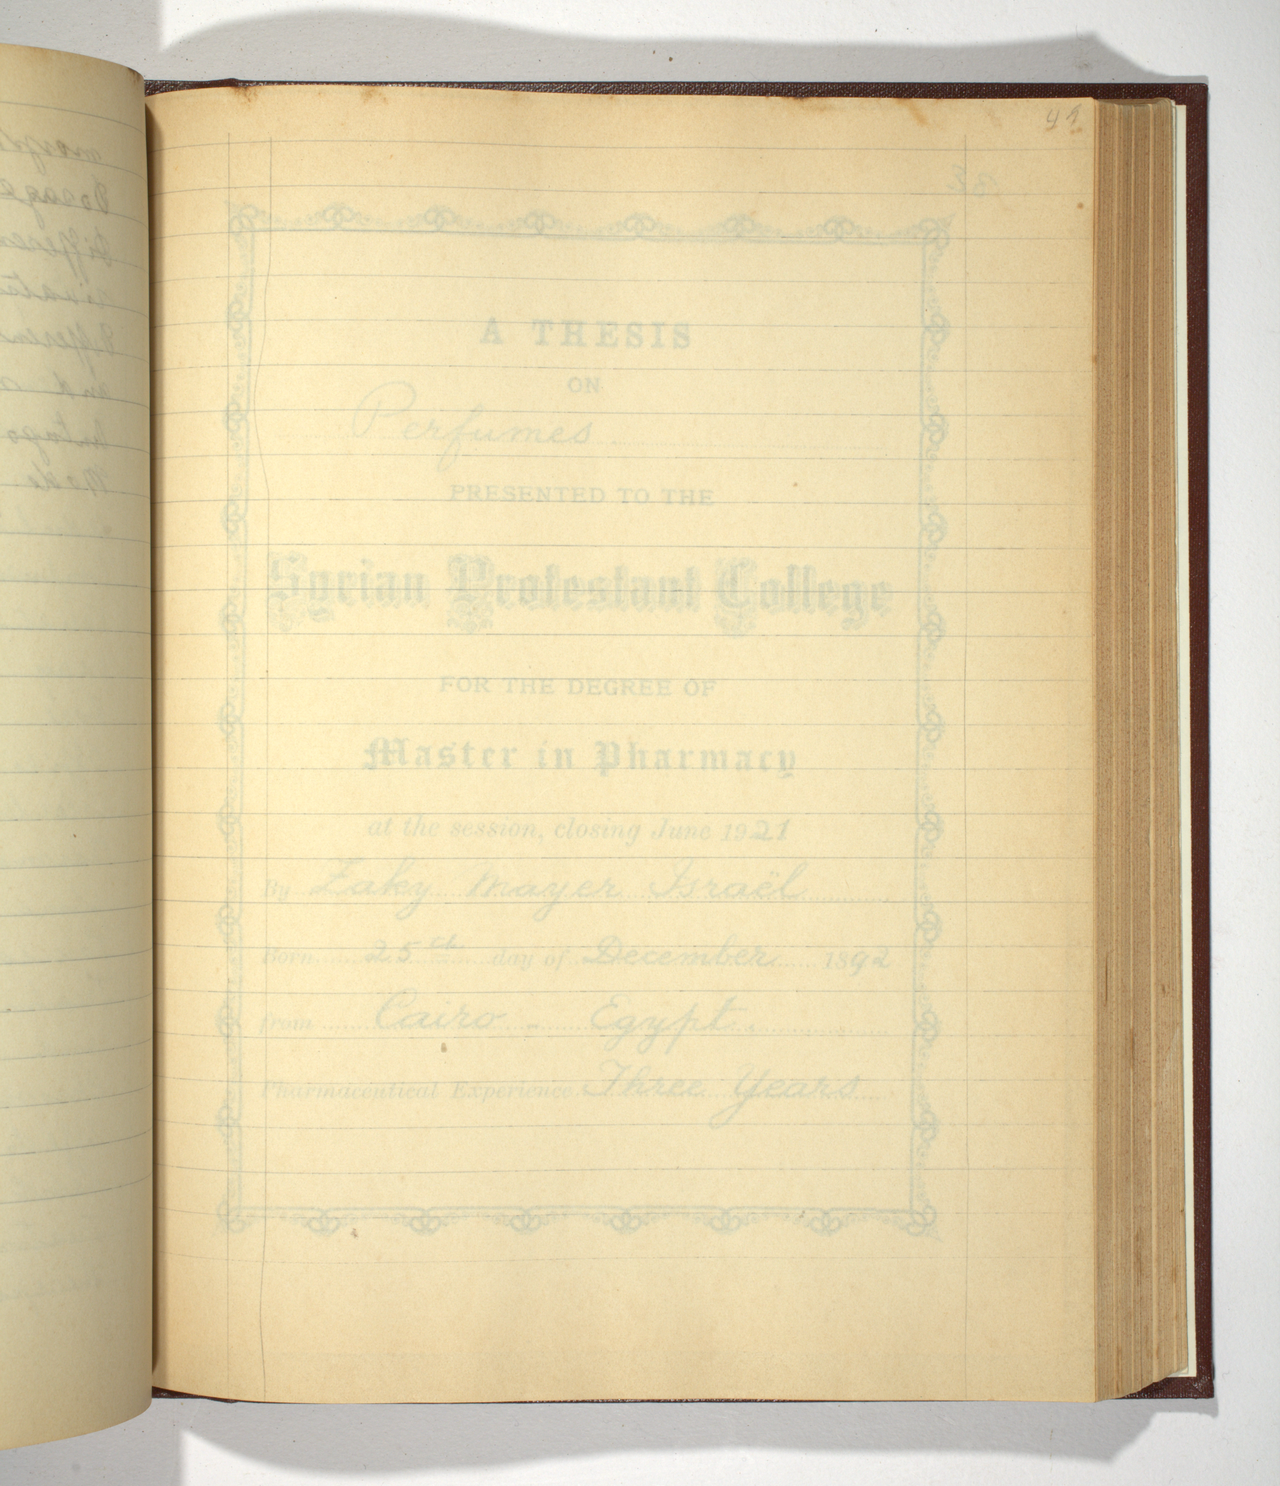 A THESIS
ON
Perfumes
PRESENTED TO THE
Syrian Protestant College
FOR THE DEGREE OF
Master in Pharmacy
at the session, closing June 1921
By Zaky Mayer Israël
Born 25th day of December 1892
from Cairo - Egypt.
Pharmaceutical Experience Three Years